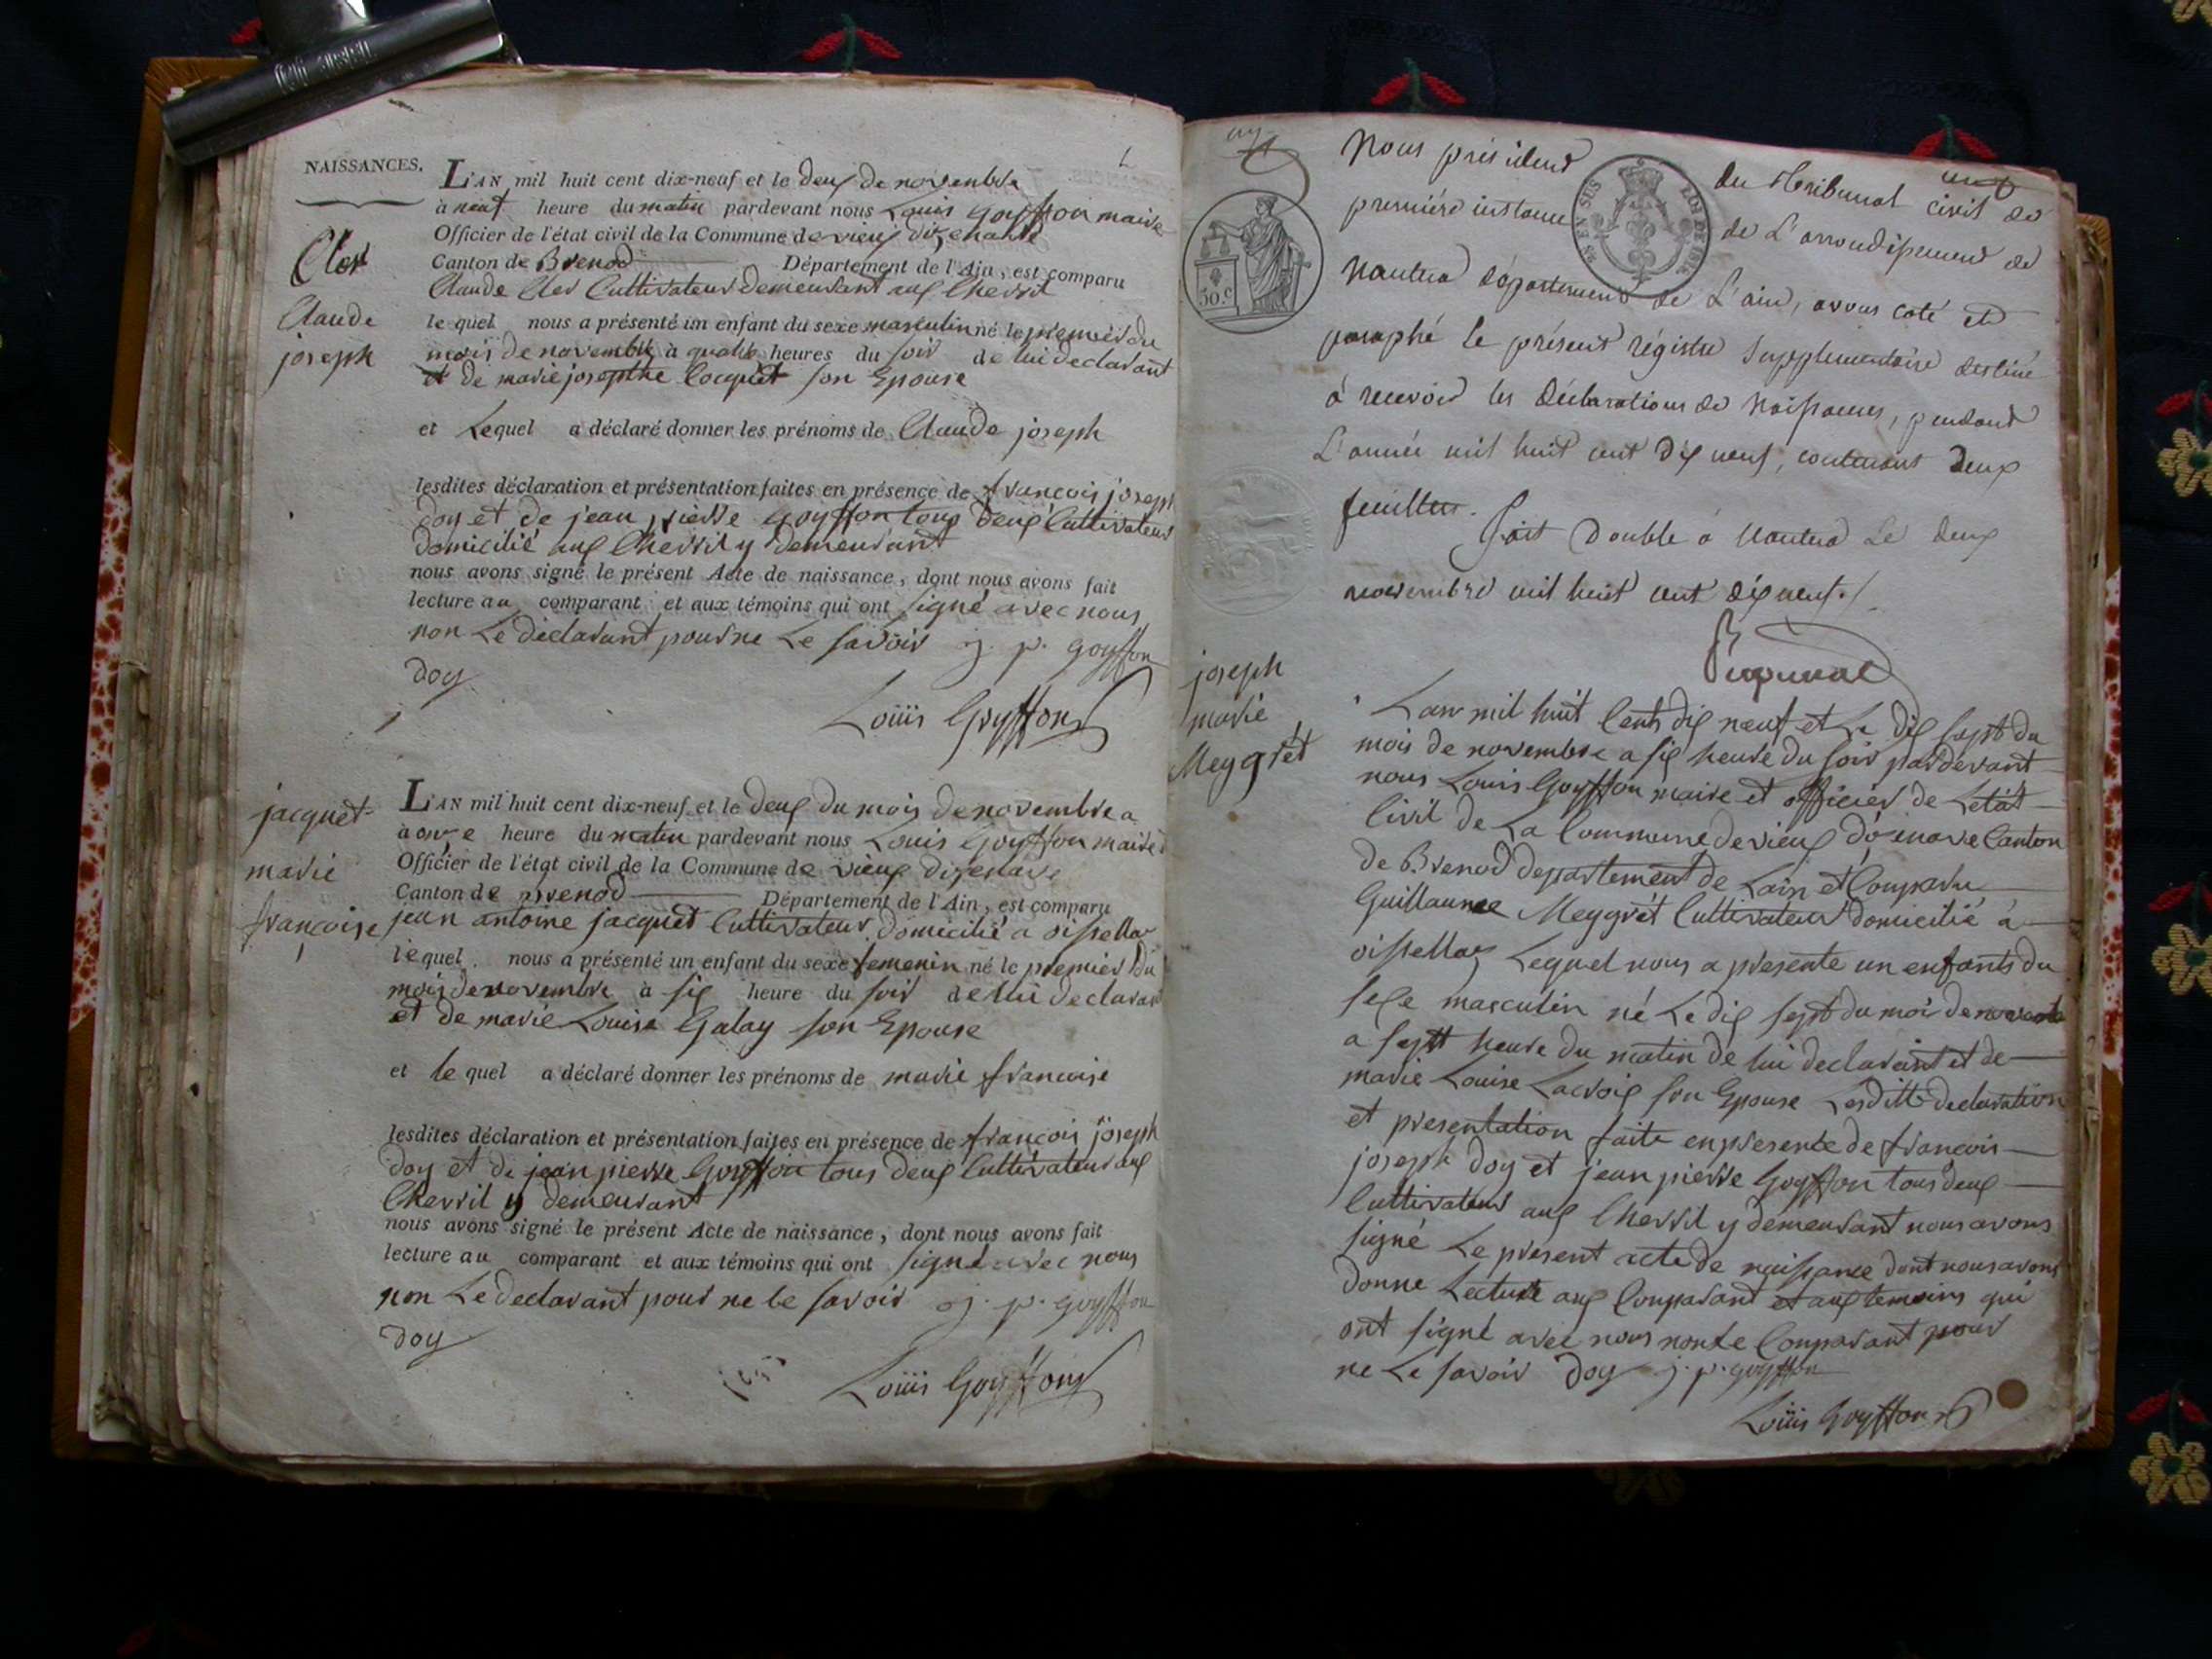 NAISSANCES.
L'AN mil huit cent dix-neuf et le deux de novembre
à neuf heure du matin pardevant nous Louis Goyffon maire
Officier de l'état civil de la Commune de vieux dizenave
Canton de Brenod Département de l'Ain, est comparu
Claude Cler Cultivateur demeurant aux Cherril
Claude
joseph
le quel nous a présenté un enfant du sexe masculin né le premier du
mois de novembre à quatre heures du soir de lui declarant
et de marie josephte Cocquet son Epouse
et Lequel a déclaré donner les prénoms de Claude joseph
lesdites déclaration et présentation faites en présence de francois joseph
doy et de jean pierre goyffon tous deux Cultivateur
domicilié aux Cherril y demeurant
nous avons signé le présent Acte de naissance, dont nous avons fait
lecture au comparant et aux témoins qui ont signé avec nous
non Le declarant pour ne Le savoir j. p. goyffon
doy
Loüis Goyffon
jacquet
marie
francoise
L'AN mil huit cent dix-neuf et le deux du mois de novembre a
à onze heure du matin pardevant nous Louis Goyffon maire
Officier de l'état civil de la Commune de vieux dizenave
Canton de Brenod Département de l'Ain, est comparu
jean antoine jacquet Cultivateur domicilié a oissellaz
le quel nous a présenté un enfant du sexe femenin né le premier du
mois de novembre à six heure du soir de lui declarant
et de marie Louise Galay son Epouse
et le quel a déclaré donner les prénoms de marie francoise
lesdites déclaration et présentation faites en présence de francois joseph
doy et de jean pierre Goyffon tous deux Cultivateur aux
Cherril y demeurant
nous avons signé le présent Acte de naissance, dont nous avons fait
lecture au comparant et aux témoins qui ont signé avec nous
non Le declarant pour ne le savoir j. p. goyffon
doy
Loüis Goyffon
Nous président du tribunal civil de
première instance de L'arrondissement de
Nantua département de L'ain, avons coté et
paraphé le présent régistre supplementaire destiné
à recevoir les déclarations de Naissances, pendant
L'année mil huit cent dix neuf, contenant deux
feuillets.
Fait Double à Nantua Le deux
novembre mil huit cent dix neuf./.
50.c
joseph
marie
Meygrét
Lan mil huit Cents dix neuf et Le dix sept du
mois de novembre a six heure du soir pardevant
nous Louis Goyffon maire et officier de Letat
Civil de La Commune de vieux d'izenave Canton
de Brenod departement de Lain et Comparu
Guillaume Meygrét Cultivateur domicilié à
oissellaz Lequel nous a presente un enfants du
sexe masculin né Le dix sept du moi de novembre
a sept heure du matin de lui declarant et de
marie Louise Lacroix son Epouse Lesditte declaration
et presentation faite en presente de francois
joseph doy et jean pierre Goyffon tous deux
Cultivateur aux Cherril y demeurant nous avons
signé Le present acte de naissance dont nous avons
donne Lecture aux Comparant et aux temoins qui
ont signé avec nous non Le Comparant pour
ne Le savoir doy j. p. goyffon
Loüis Goyffon